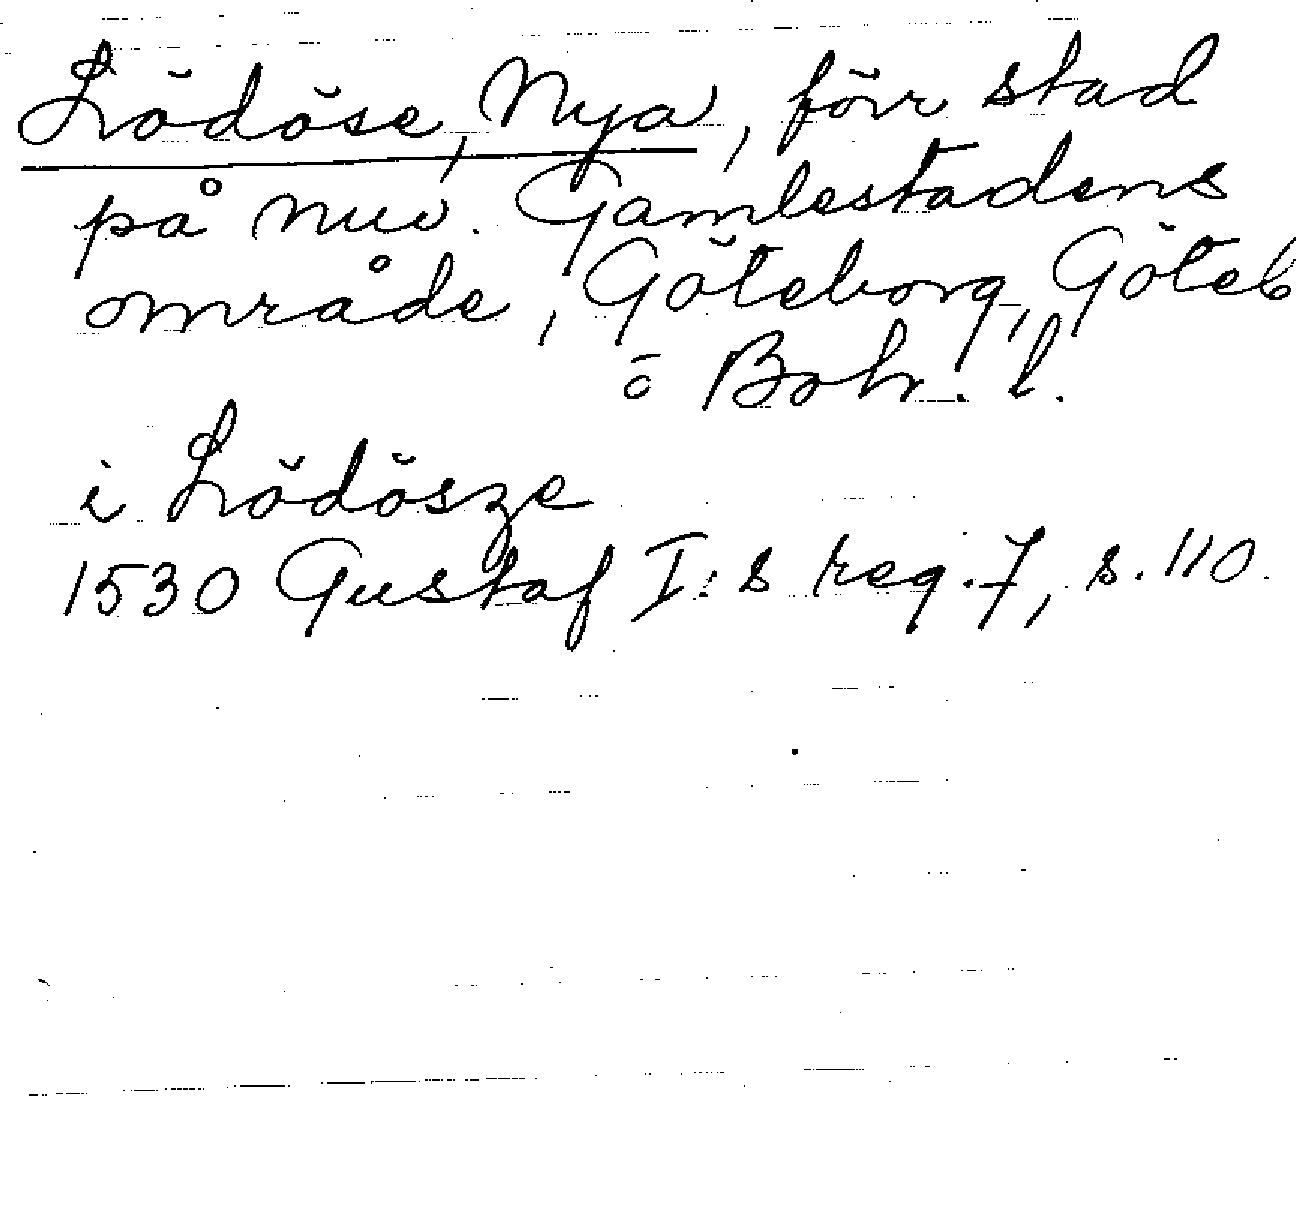 Lödöse, Nya, förr stad
på nuv. Gamlestadens
område, Göteborg, Göteb
o Bohr. l.
i Lödösze
1530 Gustaf I:s reg. 7, s. 110.